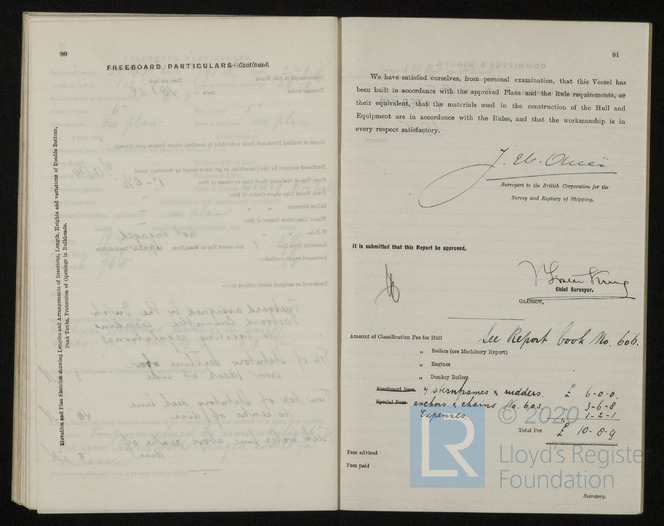 90
FREEBOARD PARTICULARS—Continued
Elevation and Plan Sketches showing Lengths and Arrangements of Erections, Length, Heights and variations of Double Bottom,
Peak Tanks, Protection of Openings in Bulkheads.
91
We have satisfied ourselves, from personal examination, that this Vessel has
been built in accordance with the approved Plans and the Rule requirements, or
their equivalent, that the materials used in the construction of the Hull and
Equipment are in accordance with the Rules, and that the workmanship is in
every respect satisfactory.
Surveyors to the British Corporation for the
Survey and Registry of Shipping.
It is submitted that this Report be approved,
Chief Surveyor.
GLASGOW,
Amount of Classification Fee for Hull See Report book No. 606.
„ Boilers (see Machinery Report)
„ Engines
„ Donkey Boilers
Freeboard Fees 4 sternframes & rudders. £ 6-0-0.
Special Fees anchors & chains No. 603 3-6-8
Expenses 1-2-1
Total Fee £ 10-8-9
Fees advised
Fees paid
Secretary.
© 2020
LR
Lloyd's Register
Foundation